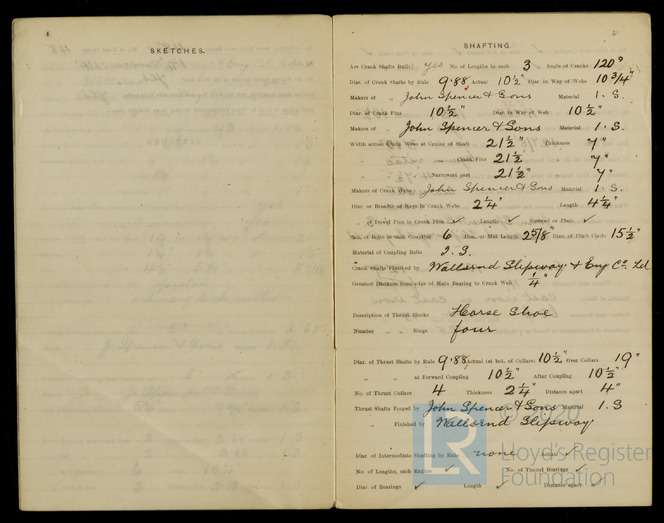 SKETCHES.
SHAFTING.
Are Crank Shafts Built? yes No. of Lengths in each 3 Angle of Cranks 120°
Diar. of Crank Shafts by Rule 9.88 Actual 10½" Diar in Way of Webs 10¾"
Makers of " John Spencer & Sons Material I. S.
Diar. of Crank Pins 10½" Diar. in Way of Web 10½"
Makers of " John Spencer & Sons Material I. S.
Width across Crank Webs at Centre of Shaft 21½" Thickness 7"
" " Crank Pins 21½" " 7"
" " Narrowest part 21½" " 7"
Makers of Crank Webs John Spencer & Sons Material I. S.
Diar. or Breadth of Keys in Crank Webs 2¼" Length 4¼"
" of Dowel Pins in Crank Pins ✓ Length ✓ Screwed or Plain ✓
No. of Bolts in each Coupling 6 Diar. at Mid Length 2⅝" Diar. of Pitch Circle 15½"
Material of Coupling Bolts I. S.
Crank Shafts Finished by Wallsend Slipway & Eng Co. Ld
Greatest Distance from edge of Main Bearing to Crank Web ¼"
Description of Thrust Blocks Horse Shoe
Number " Rings four
Diar. of Thrust Shafts by Rule 9.88 Actual (at bot. of Collars) 10½" Over Collars 19"
" " at Forward Coupling 10½" After Coupling 10½"
No. of Thrust Collars 4 Thickness 2¼" Distance apart 4"
Thrust Shafts Forged by John Spencer & Sons Material I. S
" Finished by Wallsend Slipway
Diar. of Intermediate Shafting by Rule none Actual ✓
No. of Lengths, each Engine ✓ No. of Tunnel Bearings ✓
Diar. of Bearings ✓ Length ✓ Distance apart ✓
LR
© 2020
Lloyd's Register
Foundation